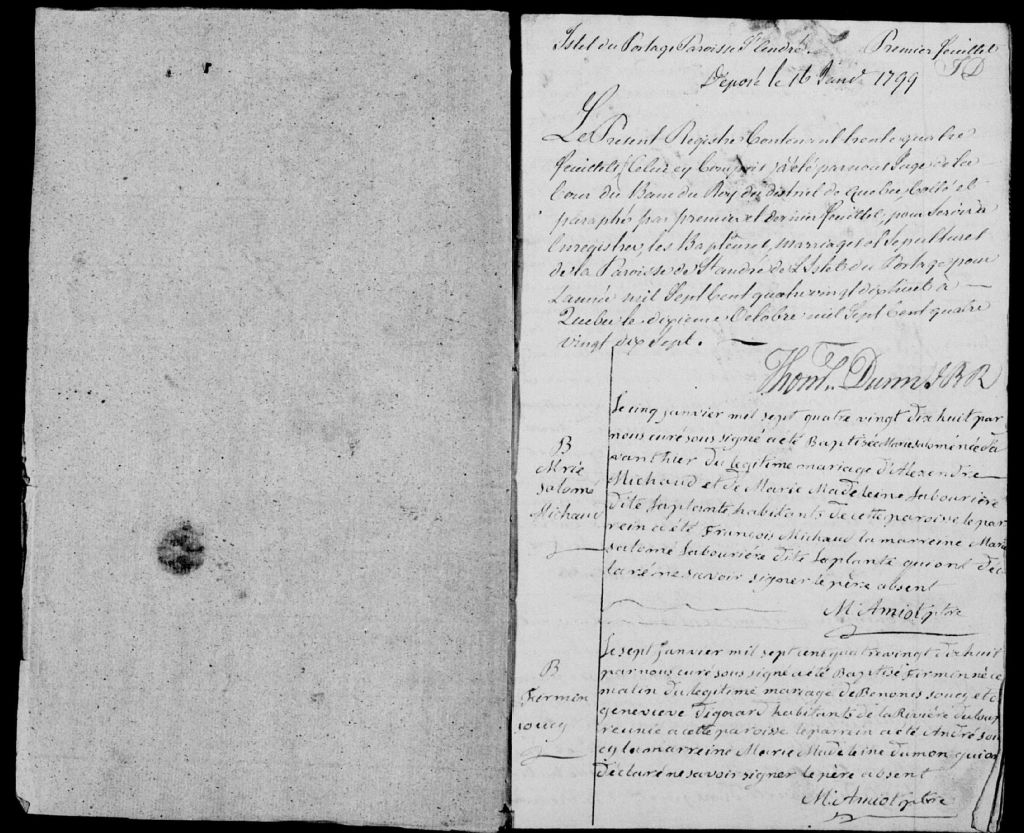 Islet du Portage Paroisse St. André. Premier feuillet
T D
Déposé le 16 Janv 1799
Le Présent Registre Contenant trente quatre
feuillets Celuicy Compris a été par nous Juge de la
Cour du Banc du Roy du district de Quebec, Cotté et
paraphé par premier et dernier feuillet, pour servir à
Enregistrer, les Baptêmes, mariages et Sepultures
de la Paroisse de St andré de L'Islet du Portage pour
L'année mil Sept Cent quatre vingt dix huit à
Quebec le dixieme Octobre mil Sept Cent quatre
vingt dix Sept.
Thos. Dunn J B R
Le cinq janvier mil sept quatre vingt dix huit par
nous curé sous signé a été Baptisée Marie salomé née d'a
vant hier du legitime mariage d'Alexandre
Michaud et de Marie Madeleine Labourière
dite Laplante habitants de cette paroisse le par
rein a été François Michaud la marreine Marie
salomé Labourière dite Laplante qui ont déc
laré ne savoir signer le père absent
Mi Amiot ptre
B
Mrie
salomé
Michaud
Le sept janvier mil sept cent quatre vingt dix huit
par nous curé sous signé a été Baptisé Firmin né ce
matin du legitime mariage de Benonis soucy et de
genevieve digouard habitants de la Rivière du loup
reunie a cette paroisse le parrein a été André sou
cy la marreine Marie Madeleine dumon qui ont
déclaré ne savoir signer le père absent
Mi Amiot ptre
B
Firmin
soucy